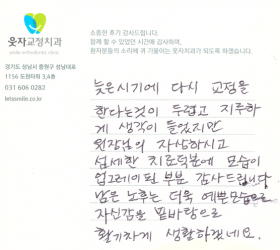 소중한 후기 감사드립니다.
함께 할 수 있었던 시간에 감사하며,
환자분들의 소리에 귀 기울이는 웃자교정치과가 되도록 하겠습니다.
웃자교정치과
smile orthodontic clinic
경기도 성남시 중원구 성남대로
1156 도원타워 3,4층
031 606 0282
letssmile.co.kr
늦은시기에 다시 교정을
한다는것이 두렵고 지루하
게 생각이 들었지만
원장님의 자상하시고
섬세한 치료덕분에 모습이
업그레이된 부분 감사드립니다
남은 노후는 더욱 예쁜모습으로
자신감을 바탕으로
활기차게 생활하겠네요.